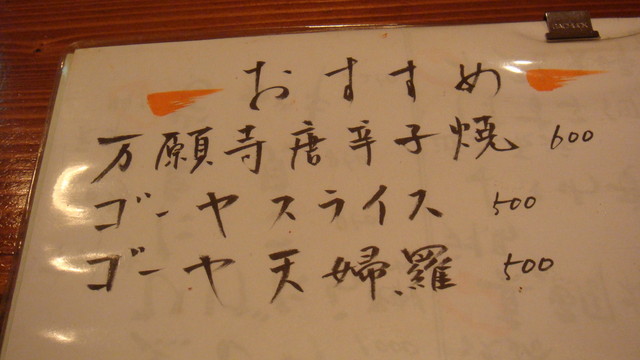 おすすめ
万願寺唐辛子焼 600
ゴーヤスライス 500
ゴーヤ天婦羅 500